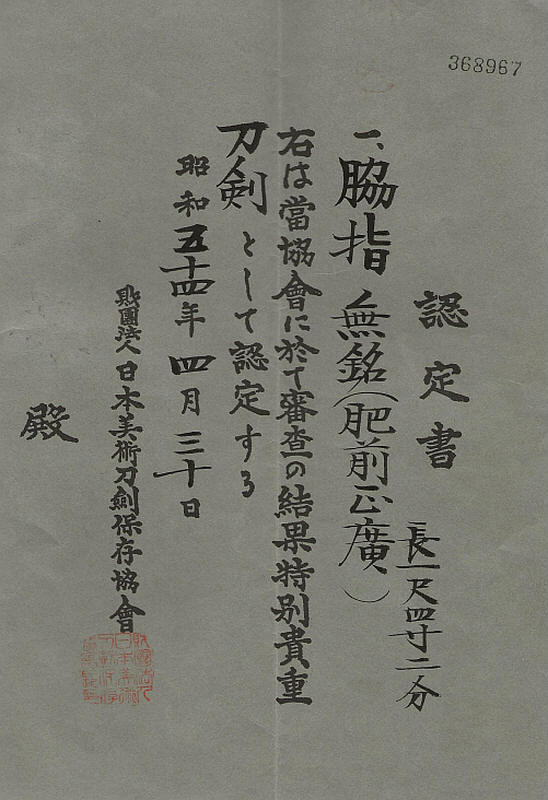 368967
認定書
一、脇指 無銘(肥前正廣)
長一尺四寸二分
右は當協會に於て審査の結果特別貴重
刀剣として認定する
昭和五十四年四月三十日
財團法人日本美術刀劍保存協會
殿